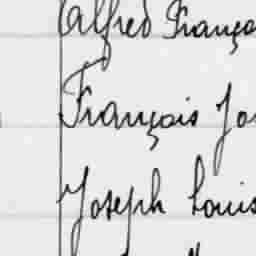 Alfred Franço
François Jos
Joseph Louis